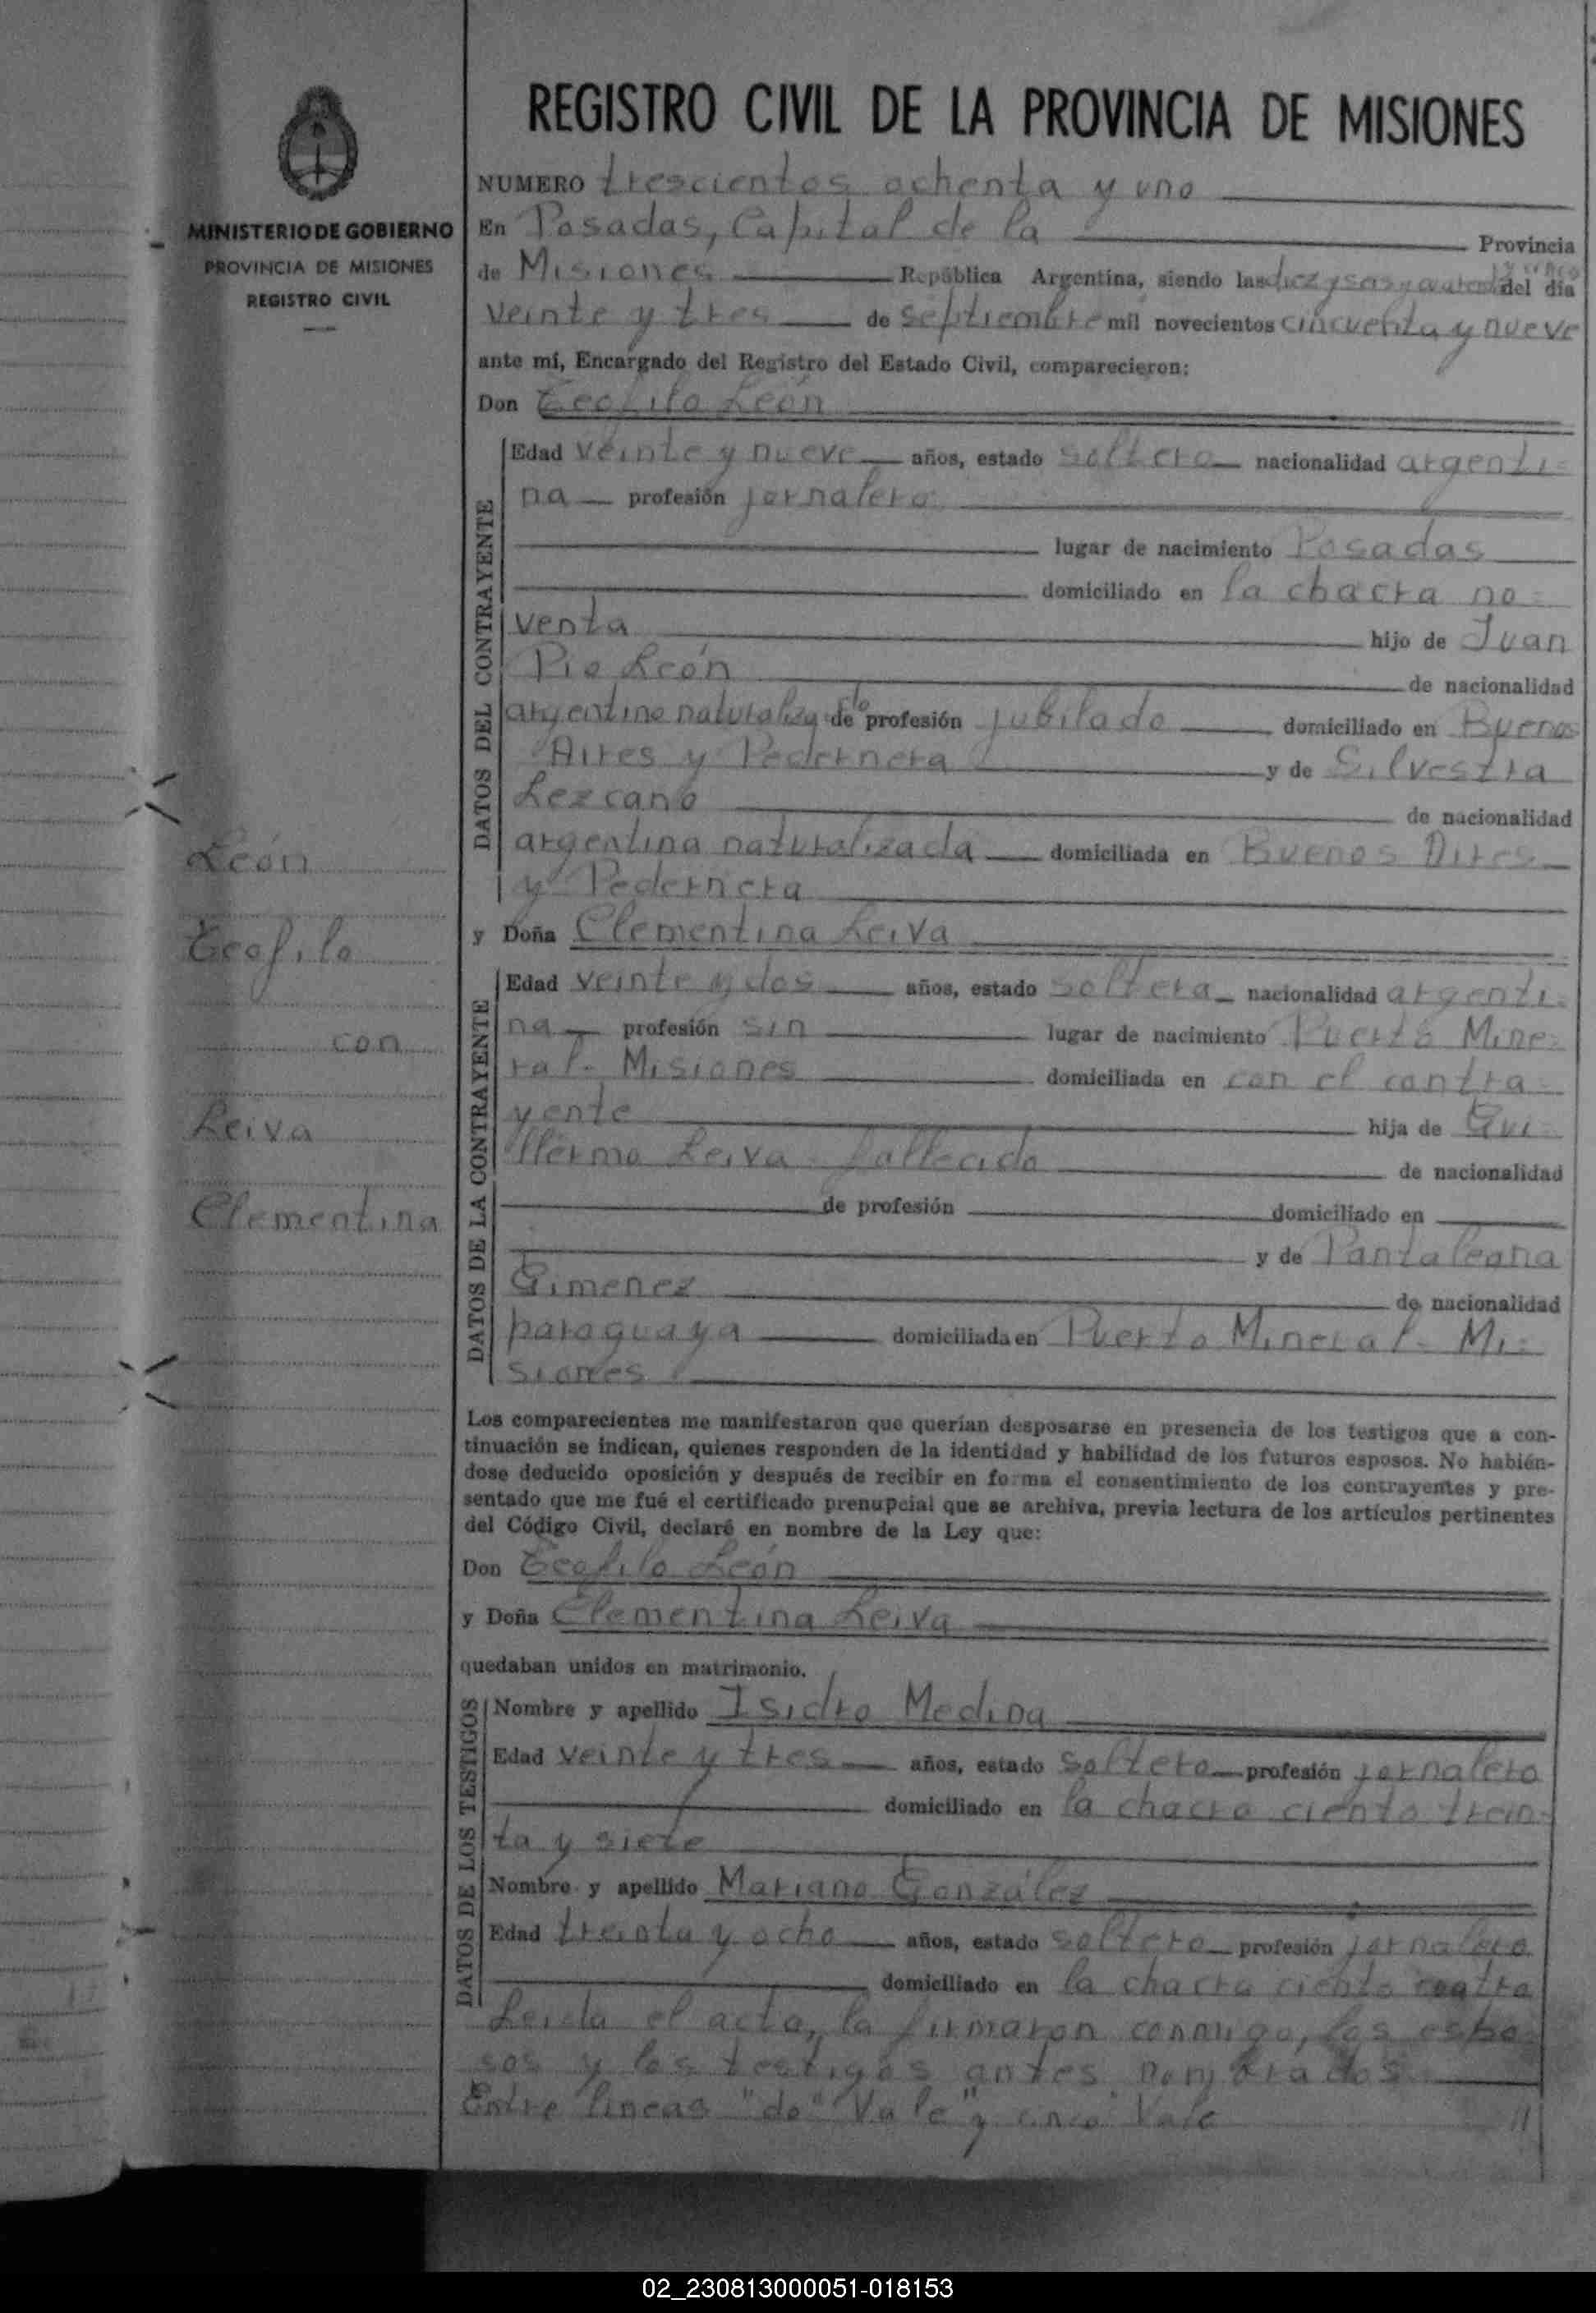 REGISTRO CIVIL DE LA PROVINCIA DE MISIONES
MINISTERIO DE GOBIERNO
PROVINCIA DE MISIONES
REGISTRO CIVIL
León
Teofilo
con
Leiva
Clementina
NUMERO trescientos ochenta y uno
En Posadas, Capital de la Provincia
y cinco
de Misiones República Argentina, siendo las diez y seis y cuarenta del día
veinte y tres de septiembre mil novecientos cincuenta y nueve
ante mí, Encargado del Registro del Estado Civil, comparecieron:
Don Teofilo León
DATOS DEL CONTRAYENTE
Edad veinte y nueve años, estado soltero nacionalidad argenti=
na profesión jornalero
lugar de nacimiento Posadas
domiciliado en la chacra no=
venta hijo de Juan
Pio León de nacionalidad
do
argentino naturaliza de profesión jubilado domiciliado en Buenos
Aires y Pedernera y de Silvestra
Lezcano de nacionalidad
argentina naturalizada domiciliada en Buenos Aires
y Pedernera
y Doña Clementina Leiva
DATOS DE LA CONTRAYENTE
Edad veinte y dos años, estado soltera nacionalidad argenti=
na profesión sin lugar de nacimiento Puerto Mine=
ral- Misiones domiciliada en con el contra=
yente hija de Gui=
llermo Leiva- fallecido de nacionalidad
de profesión domiciliado en
y de Pantaleona
Gimenez de nacionalidad
paraguaya domiciliada en Puerto Mineral- Mi=
siones
Los comparecientes me manifestaron que querían desposarse en presencia de los testigos que a con-
tinuación se indican, quienes responden de la identidad y habilidad de los futuros esposos. No habién-
dose deducido oposición y después de recibir en forma el consentimiento de los contrayentes y pre-
sentado que me fué el certificado prenupcial que se archiva, previa lectura de los artículos pertinentes
del Código Civil, declaré en nombre de la Ley que:
Don Teofilo León
y Doña Clementina Leiva
quedaban unidos en matrimonio.
DATOS DE LOS TESTIGOS
Nombre y apellido Isidro Medina
Edad veinte y tres años, estado soltero profesión jornalero
domiciliado en la chacra ciento trein=
ta y siete
Nombre y apellido Mariano González
Edad treinta y ocho años, estado soltero profesión jornalero
domiciliado en la chacra ciento cuatro
Leída el acta, la firmaron conmigo, los espo=
sos y los testigos antes nombrados
Entre lineas "do" Vale "y cinco" Vale
02_230813000051-018153